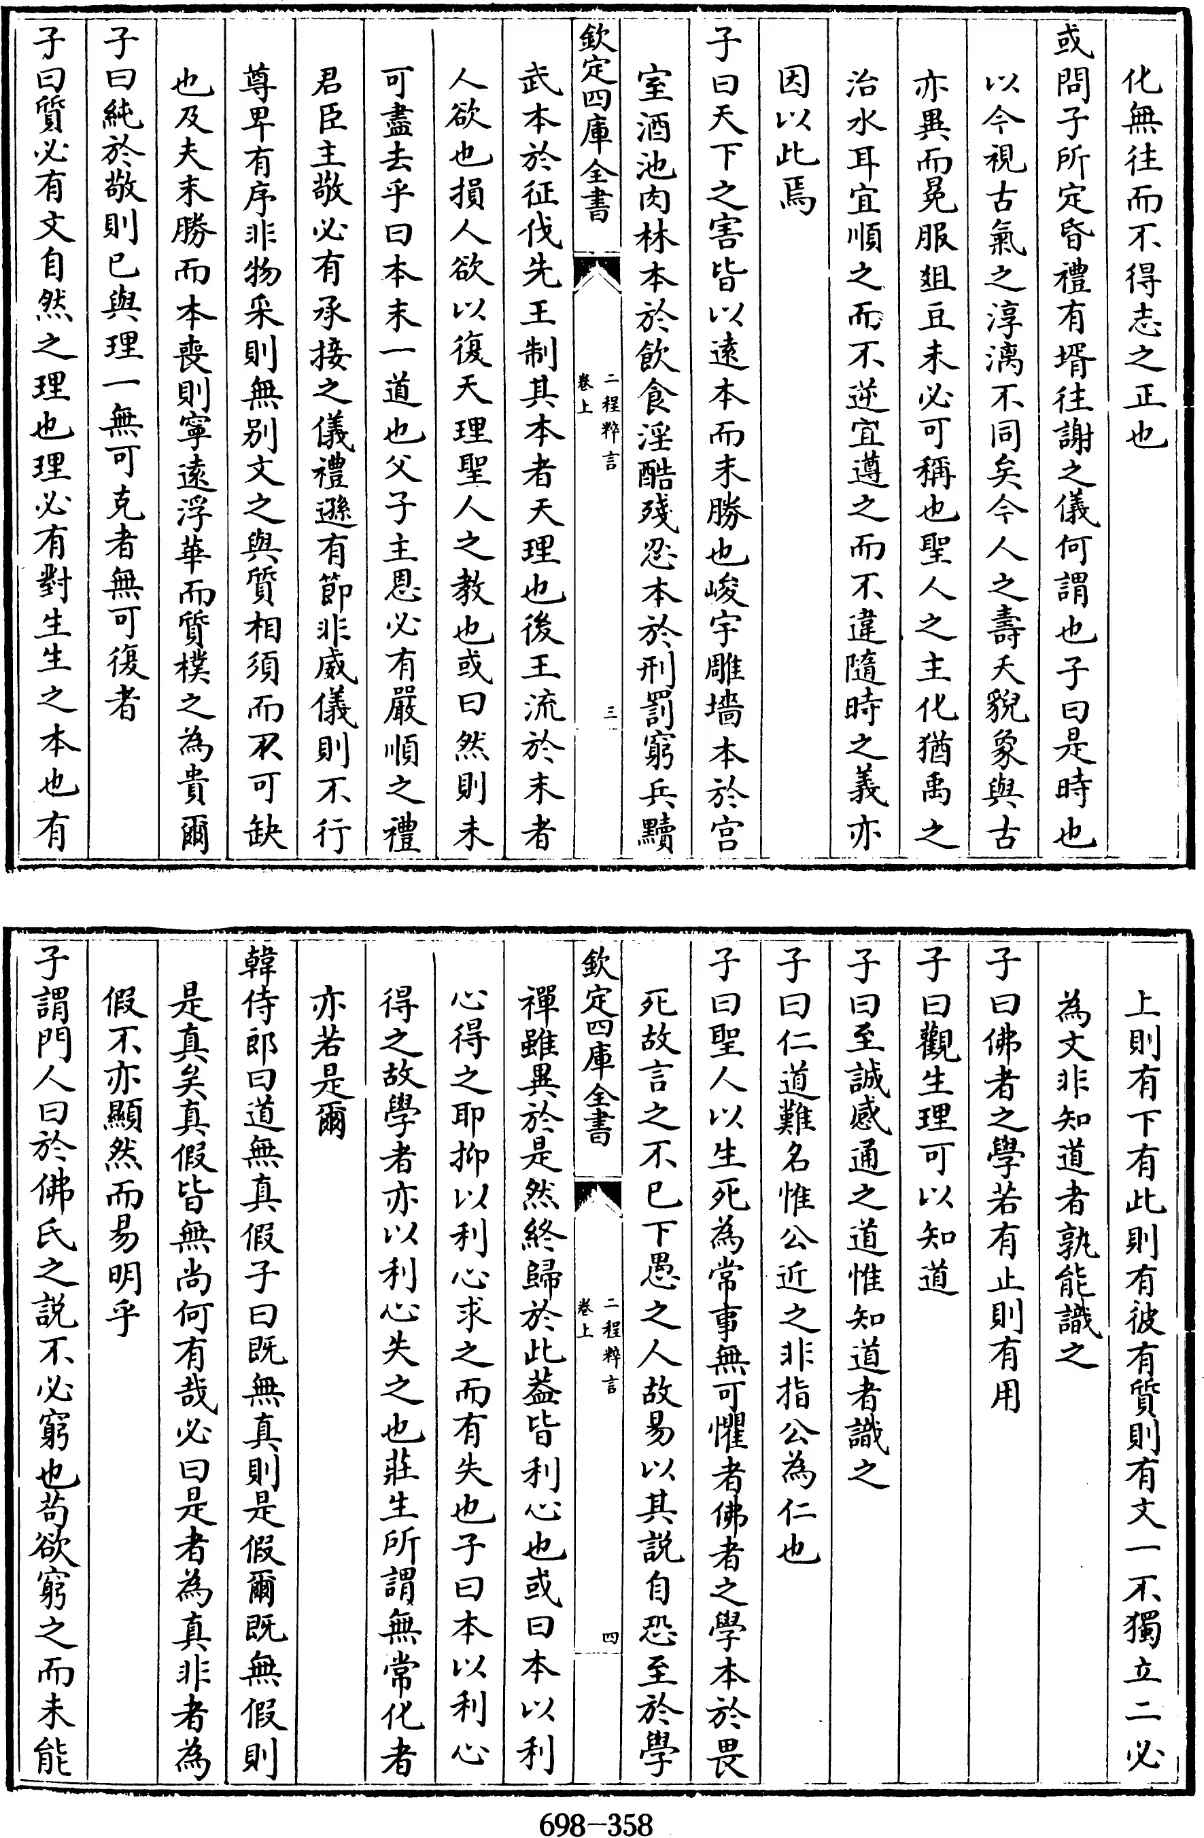 化無往而不得志之正也
或問子所定昏禮有壻往謝之儀何謂也子曰是時也
以今視古氣之淳漓不同矣今人之壽夭貌象與古
亦異而冕服俎豆未必可稱也聖人之主化猶禹之
治水耳宜順之而不逆宜遵之而不違隨時之義亦
因以此焉
子曰天下之害皆以遠本而末勝也峻宇雕墻本於宫
室酒池肉林本於飲食淫酷殘忍本於刑罰窮兵黷
欽定四庫全書
二程粹言
卷上
三
武本於征伐先王制其本者天理也後王流於末者
人欲也損人欲以復天理聖人之教也或曰然則末
可盡去乎曰本末一道也父子主恩必有嚴順之禮
君臣主敬必有承接之儀禮遜有節非威儀則不行
尊卑有序非物采則無别文之與質相須而不可缺
也及夫末勝而本喪則寧遠浮華而質樸之為貴爾
子曰純於敬則已與理一無可克者無可復者
子曰質必有文自然之理也理必有對生生之本也有
上則有下有此則有彼有質則有文一不獨立二必
為文非知道者孰能識之
子曰佛者之學若有止則有用
子曰觀生理可以知道
子曰至誠感通之道惟知道者識之
子曰仁道難名惟公近之非指公為仁也
子曰聖人以生死為常事無可懼者佛者之學本於畏
死故言之不已下愚之人故易以其説自恐至於學
欽定四庫全書
二程粹言
卷上
四
禪雖異於是然終歸於此葢皆利心也或曰本以利
心得之耶抑以利心求之而有失也子曰本以利心
得之故學者亦以利心失之也莊生所謂無常化者
亦若是爾
韓侍郎曰道無真假子曰既無真則是假爾既無假則
是真矣真假皆無尚何有哉必曰是者為真非者為
假不亦顯然而易明乎
子謂門人曰於佛氏之説不必窮也苟欲窮之而未能
698-358